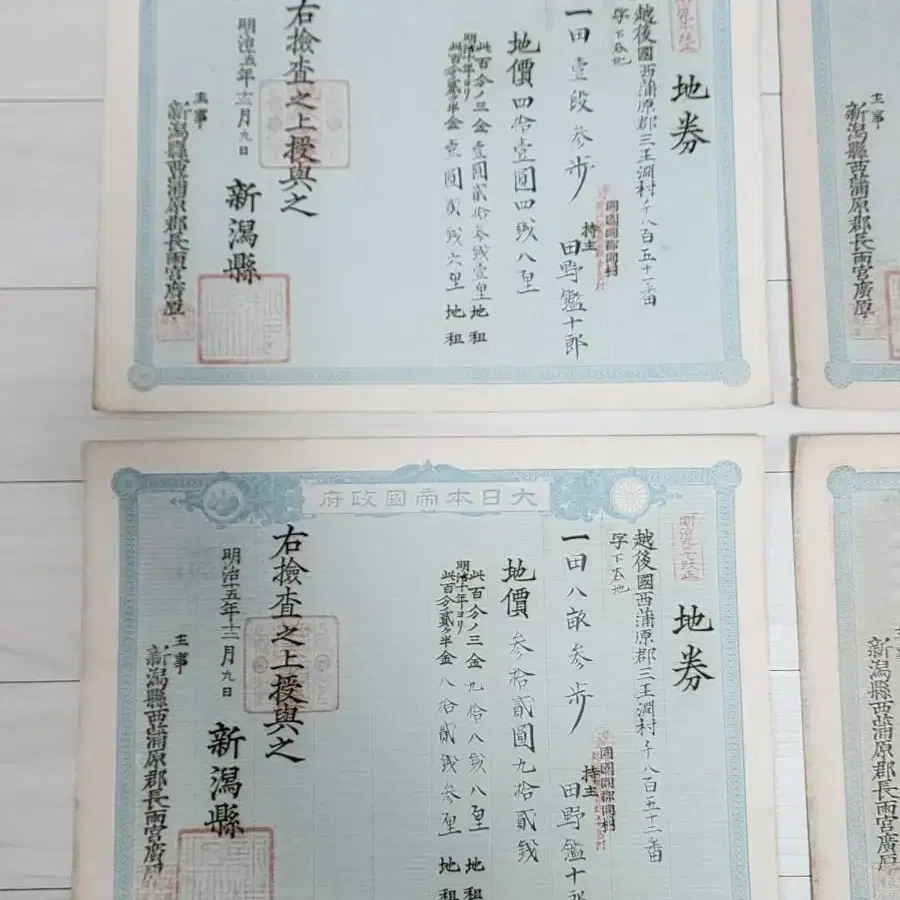 地券
越後國西蒲原郡三王淵村千八百五十一番
一田壹段参歩
同國同郡同村
持主 田野鑑十郎
地價四拾壹圓四銭八厘
此百分ノ三金壹圓貳拾参銭壹厘地租
明治十年ヨリ
此百分ノ貳ケ半金壹圓貳銭六厘地租
右撿査之上授與之
明治十五年十二月九日
新潟縣
主事
新潟縣西蒲原郡長雨宮廣厚
主事
新潟縣西蒲原郡長雨宮廣厚
大日本帝國政府
地券
越後國西蒲原郡三王淵村千八百五十二番
一田八畝参歩
同國同郡同村
持主 田野鑑十郎
地價参拾貳圓九拾貳銭
此百分ノ三金九拾八銭八厘地租
明治十年ヨリ
此百分ノ貳ケ半金八拾貳銭参厘地租
右撿査之上授與之
明治十五年十二月九日
新潟縣
主事
新潟縣西蒲原郡長雨宮廣厚
新潟縣西蒲原郡長雨宮廣厚